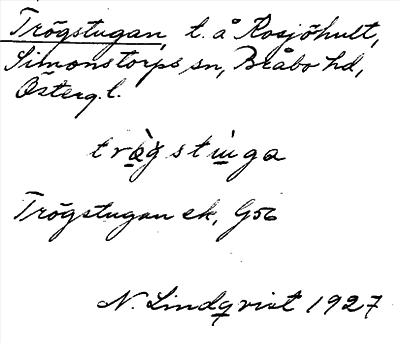 Trögstugan, t. å Rosjöhult,
Simonstorps sn, Bråbo hd,
Österg. l.
trö̀gstùga
Trögstugan ek, G56
N. Lindqvist 1927